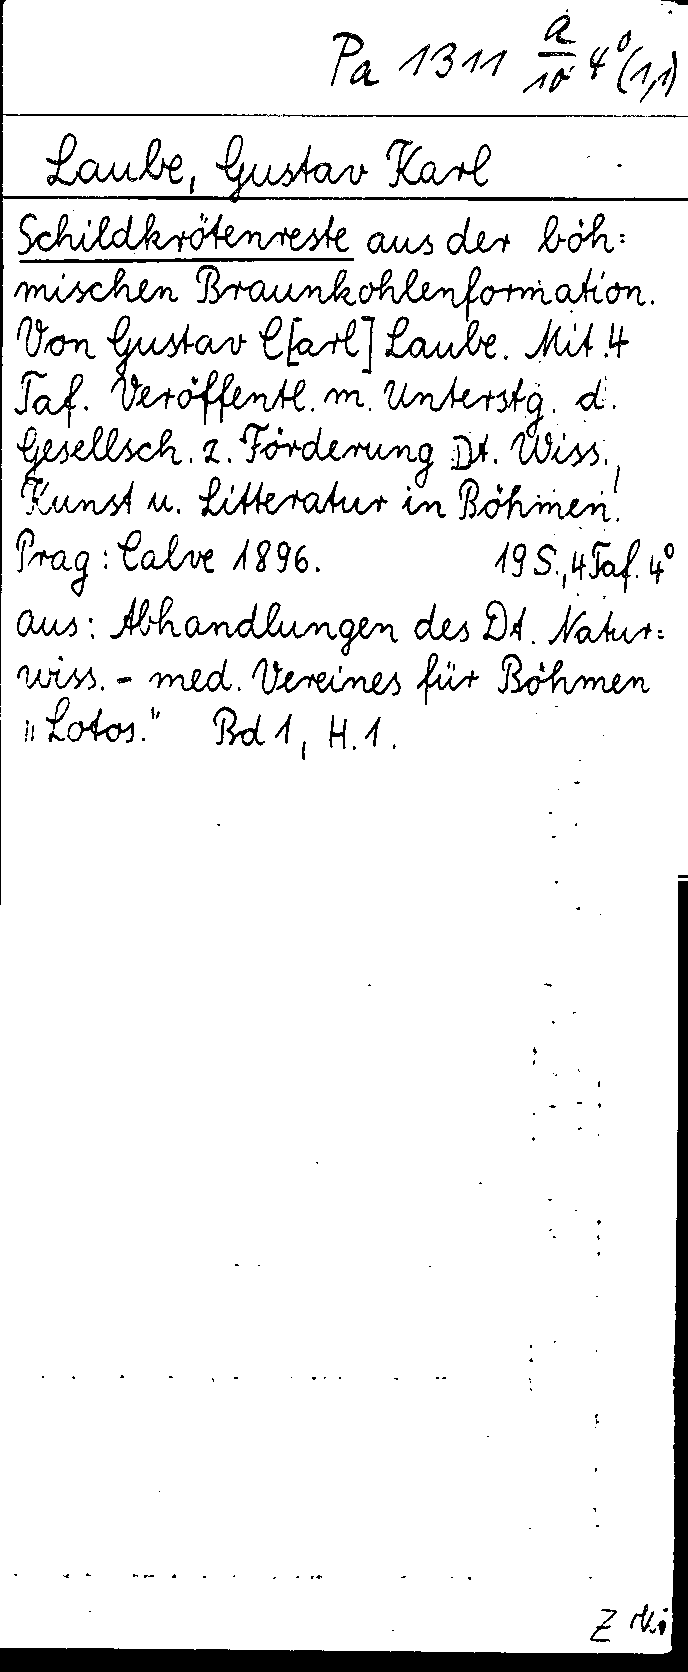 Pa 1311 a/10 4° (1,1)
Laube, Gustav Karl
Schildkrötenreste aus der böh=
mischen Braunkohlenformation.
Von Gustav C[arl] Laube. Mit 4
Taf. Veröffentl. m. Unterstg. d.
Gesellsch. z. Förderung Dt. Wiss.,
Kunst u. Litteratur in Böhmen.
Prag: Calve 1896. 19 S., 4 Taf. 4°
aus: Abhandlungen des Dt. Natur=
wiss. - med. Vereines für Böhmen
„Lotos." Bd 1, H. 1.
Z